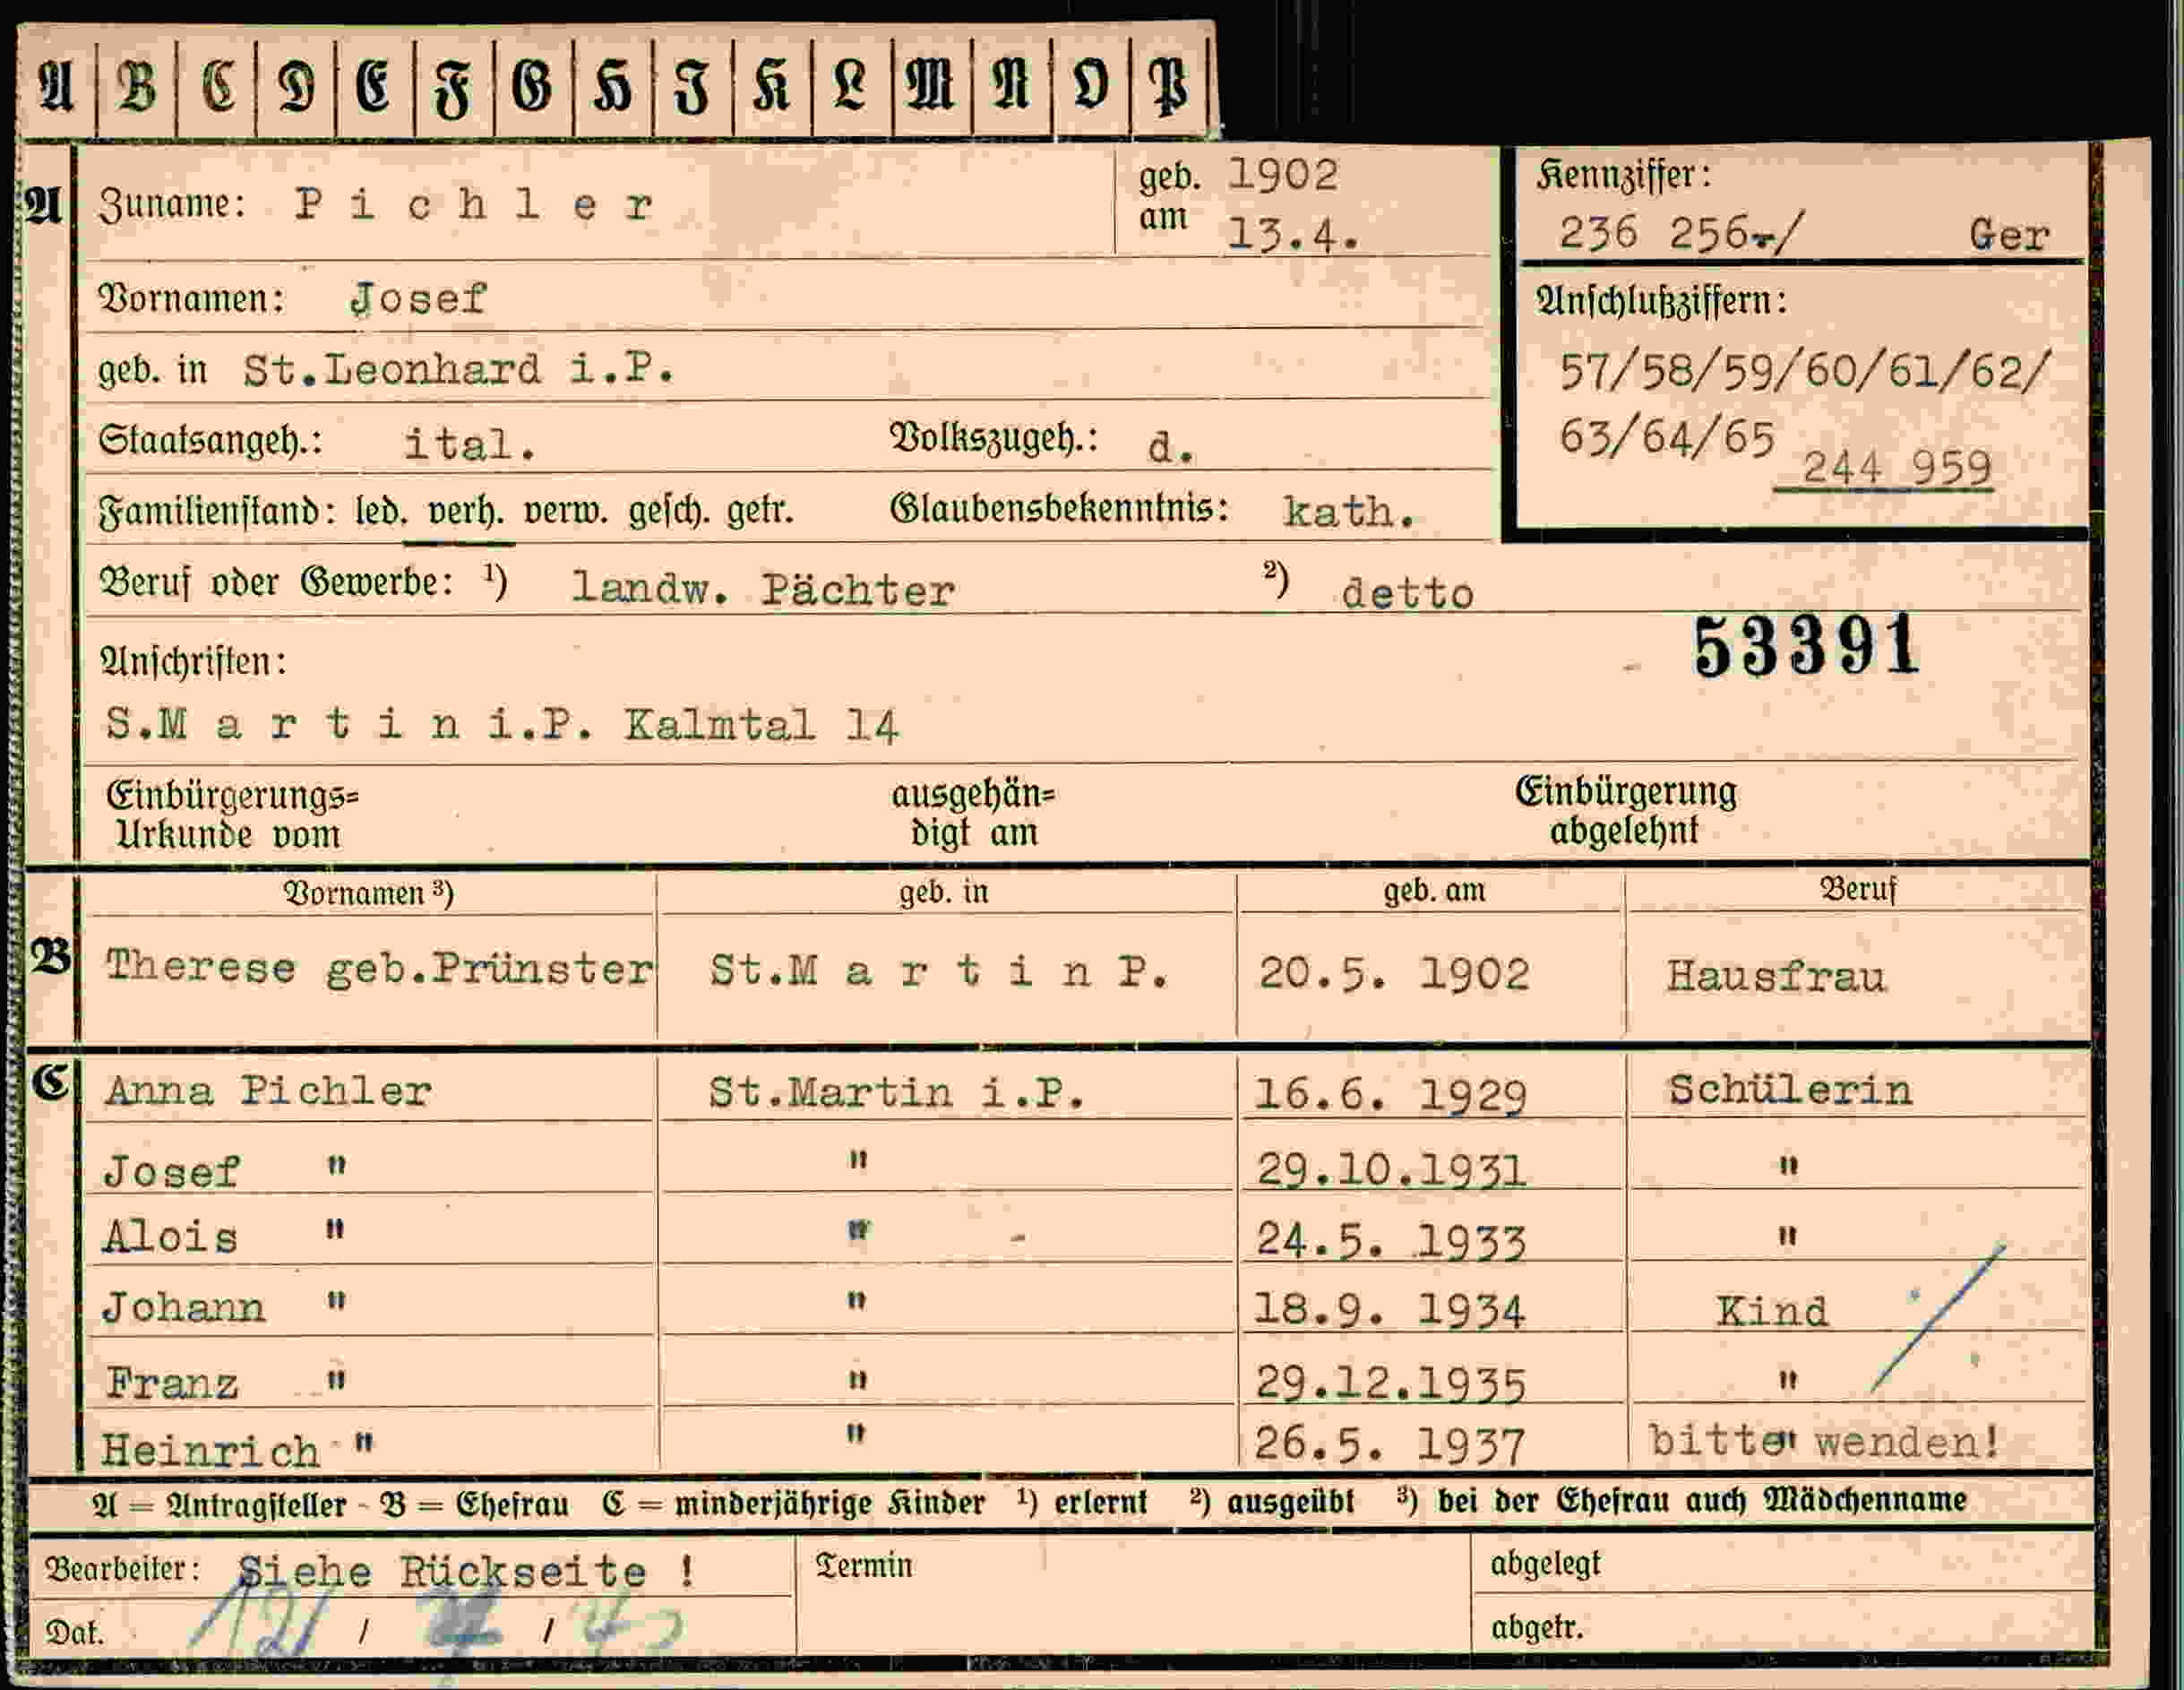 A B C D E F G H I K L M N O P
A Zuname: P i c h l e r geb. am 1902 13.4.
Kennziffer:
236 256-/ Ger
Vornamen: Josef
Anschlußziffern:
geb. in St.Leonhard i.P.
57/58/59/60/61/62/
Staatsangeh.: ital. Volkszugeh.: d.
63/64/65 244 959
Familienstand: led. verh. verw. gesch. getr. Glaubensbekenntnis: kath.
Beruf oder Gewerbe: ¹) landw. Pächter ²) detto
53391
Anschriften:
S.M a r t i n i.P. Kalmtal 14
Einbürgerungs= ausgehän= Einbürgerung
Urkunde vom digt am abgelehnt
Vornamen ³) geb. in geb. am Beruf
B Therese geb.Prünster St.M a r t i n P. 20.5. 1902 Hausfrau
C Anna Pichler St.Martin i.P. 16.6. 1929 Schülerin
Josef " " 29.10.1931 "
Alois " " 24.5. 1933 "
Johann " " 18.9. 1934 Kind
Franz " " 29.12.1935 "
Heinrich " " 26.5. 1937 bitte wenden!
A = Antragsteller - B = Ehefrau C = minderjährige Kinder ¹) erlernt ²) ausgeübt ³) bei der Ehefrau auch Mädchenname
Bearbeiter: Siehe Rückseite ! Termin abgelegt
Dat. / / abgetr.